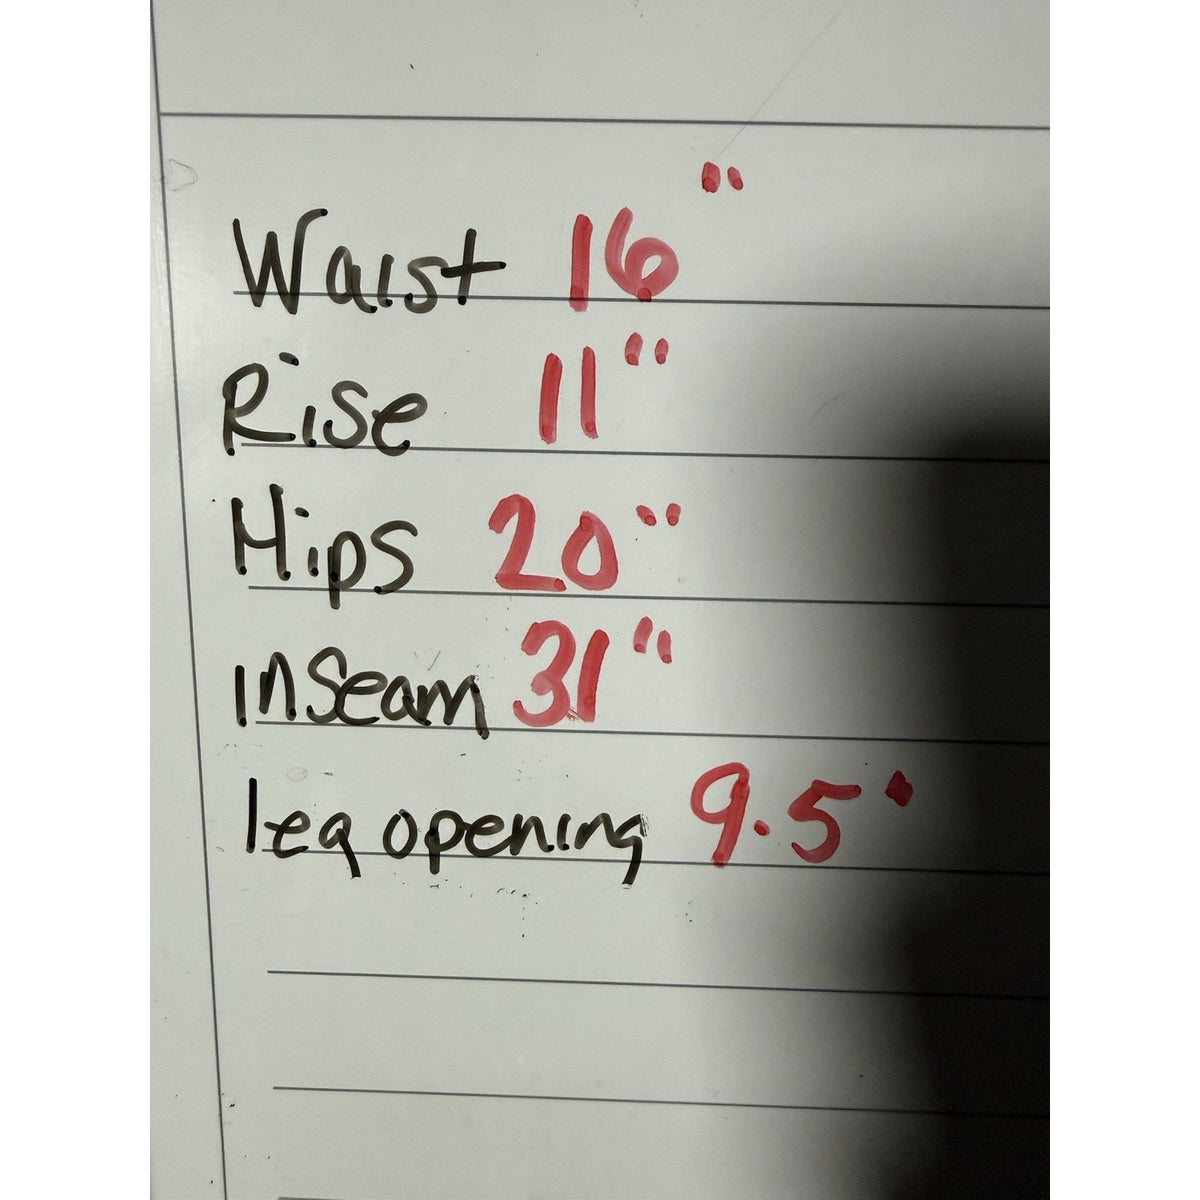 Waist 16"
Rise 11"
Hips 20"
inseam 31"
leg opening 9.5"